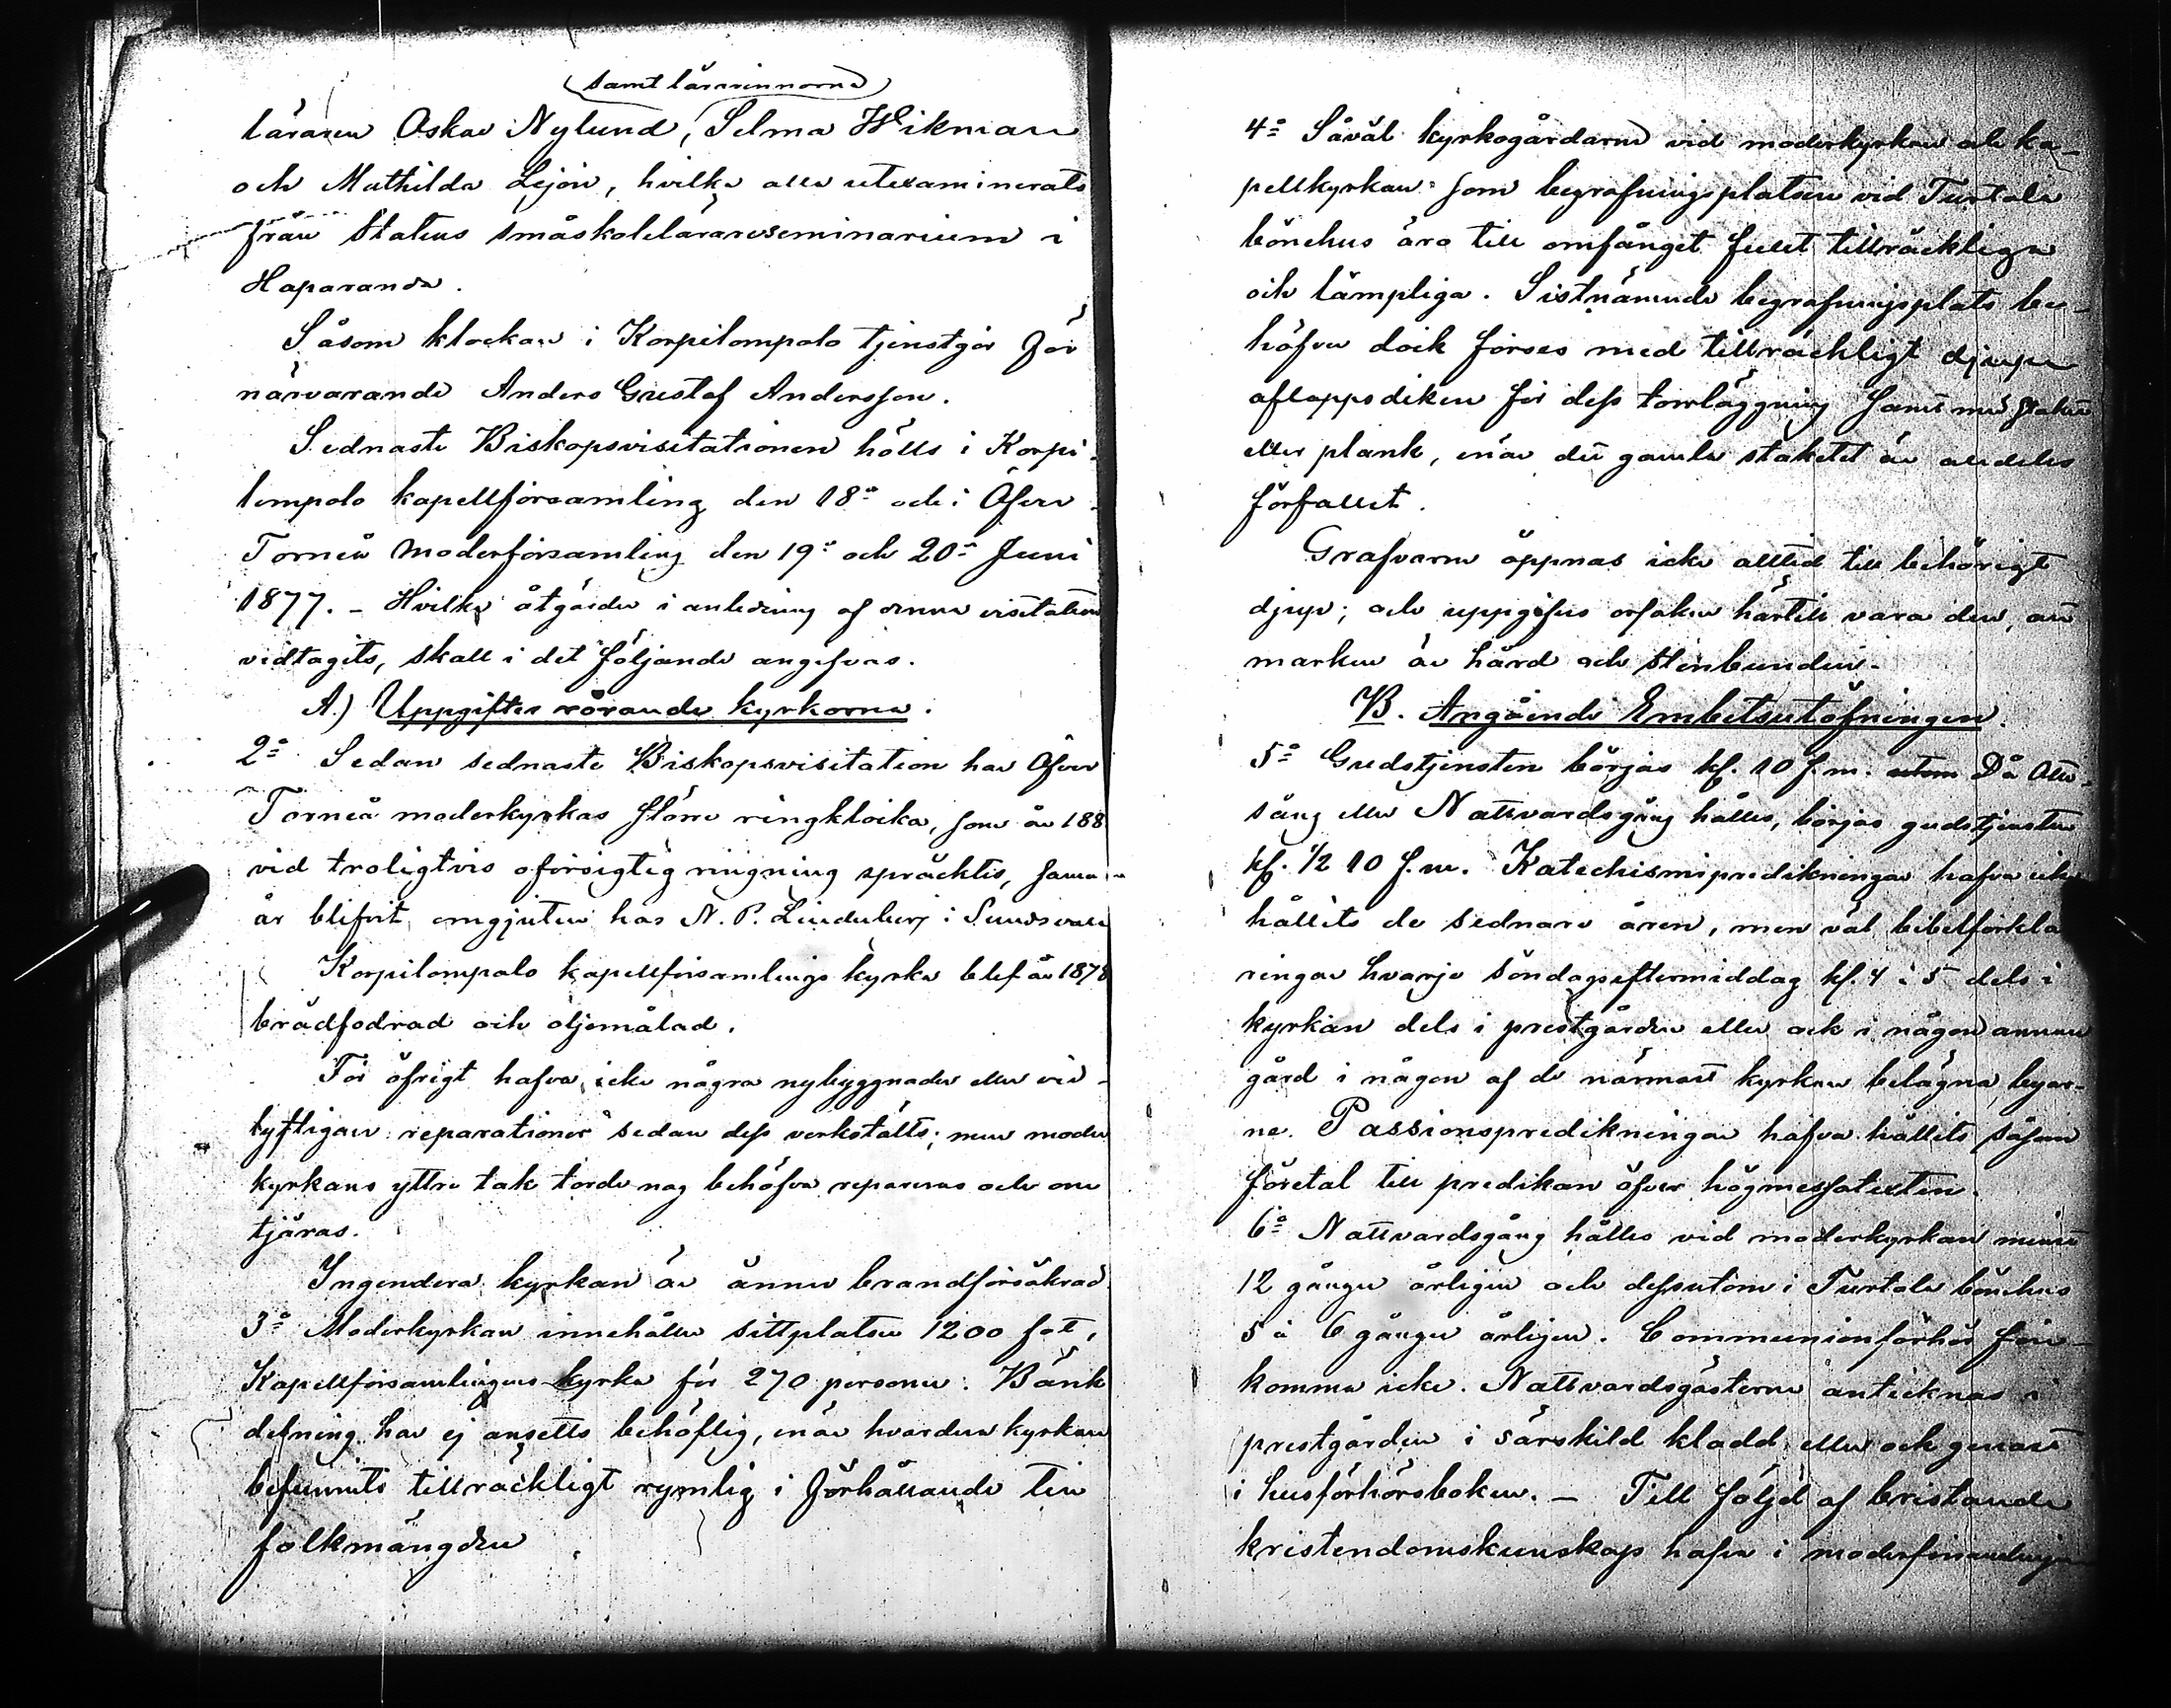 samt lärarinnorna
läraren Oskar Nylund, Selma Wikman
och Mathilda Lejon, hvilka alla utexaminerats
från Statens småskolelärareseminarium i
Haparanda.
Såsom klockare i Korpilompolo tjenstgör för
närvarande Anders Gustaf Andersson.
Sednaste Biskopsvisitationen hölls i Korpi-
lompolo kapellförsamling den 18:e och i Öfver-
Torneå moderförsamling den 19:e och 20:e Juni
1877. – Hvilka åtgärder i anledning af denna visitation
vidtagits, skall i det följande angifvas.
A.) Uppgifter rörande kyrkorna.
2:o Sedan sednaste Biskopsvisitation har Öfver
Torneå moderkyrkas större ringklocka, som år 188
vid troligtvis oförsigtig ringning spräcktes, samma
år blifvit omgjuten hos N. P. Linderberg i Sundsvall
Korpilompolo kapellförsamlings kyrka blef år 1878
brädfodrad och oljemålad.
För öfrigt hafva icke några nybyggnader eller vid-
lyftigare reparationer sedan dess verkställts; men moder
kyrkans yttre tak torde nog behöfva repareras och om
tjäras.
Ingendera kyrkan är ännu brandförsäkrad.
3:o Moderkyrkan innehåller sittplatser 1200 fot,
Kapellförsamlingens kyrka för 270 personer. Bänk
delning har ej ansetts behöflig, enär hvardera kyrkan
befunnits tillräckligt rymlig i förhållande till
folkmängden.
4:o Såväl kyrkogårdarne vid moderkyrkan och ka-
pellkyrkan som begrafningsplatsen vid Turtola
bönehus äro till omfånget fullt tillräckliga
och lämpliga. Sistnämnde begrafningsplats be-
höfver dock förses med tillräckligt djupa
aflappsdiken för dess torrläggning samt med staket
eller plank, enär det gamla staketet är alldeles
förfallet.
Grafvarne öppnas icke alltid till behörigt
djup; och uppgifves orsaken härtill vara den, att
marken är hård och stenbunden.
B. Angående Embetsutöfningen.
5:o Gudstjensten börjas kl. 10 f.m. utom Då Otte-
sång eller Nattvardsgång hålles, börjas gudstjensten
kl. 1/2 10 f.m. Katechismipredikningar hafva icke
hållits de sednare åren, men väl bibelförkla
ringar hvarje söndagseftermiddag kl. 4 à 5 dels i
kyrkan dels i prestgården eller ock i någon annan
gård i någon af de närmast kyrkan belägna byar-
ne. Passionspredikningar hafva hållits såsom
företal till predikan öfver högmessotexten.
6:o Nattvardsgång hålles vid moderkyrkan minst
12 gånger årligen och dessutom i Turtola bönehus
5 à 6 gånger årligen. Communionförhör före-
komma icke. Nattvardsgästerne antecknas i
prestgården i särskild kladd eller ock genast
i husförhörsboken. – Till följd af bristande
kristendomskunskap hafva i moderförsamlingen